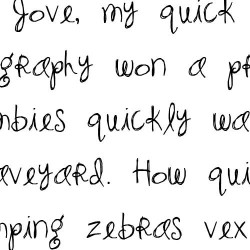 Jove, my quick
graphy won a pr
mbies quickly wa
aveyard. How qui
mping zebras vex